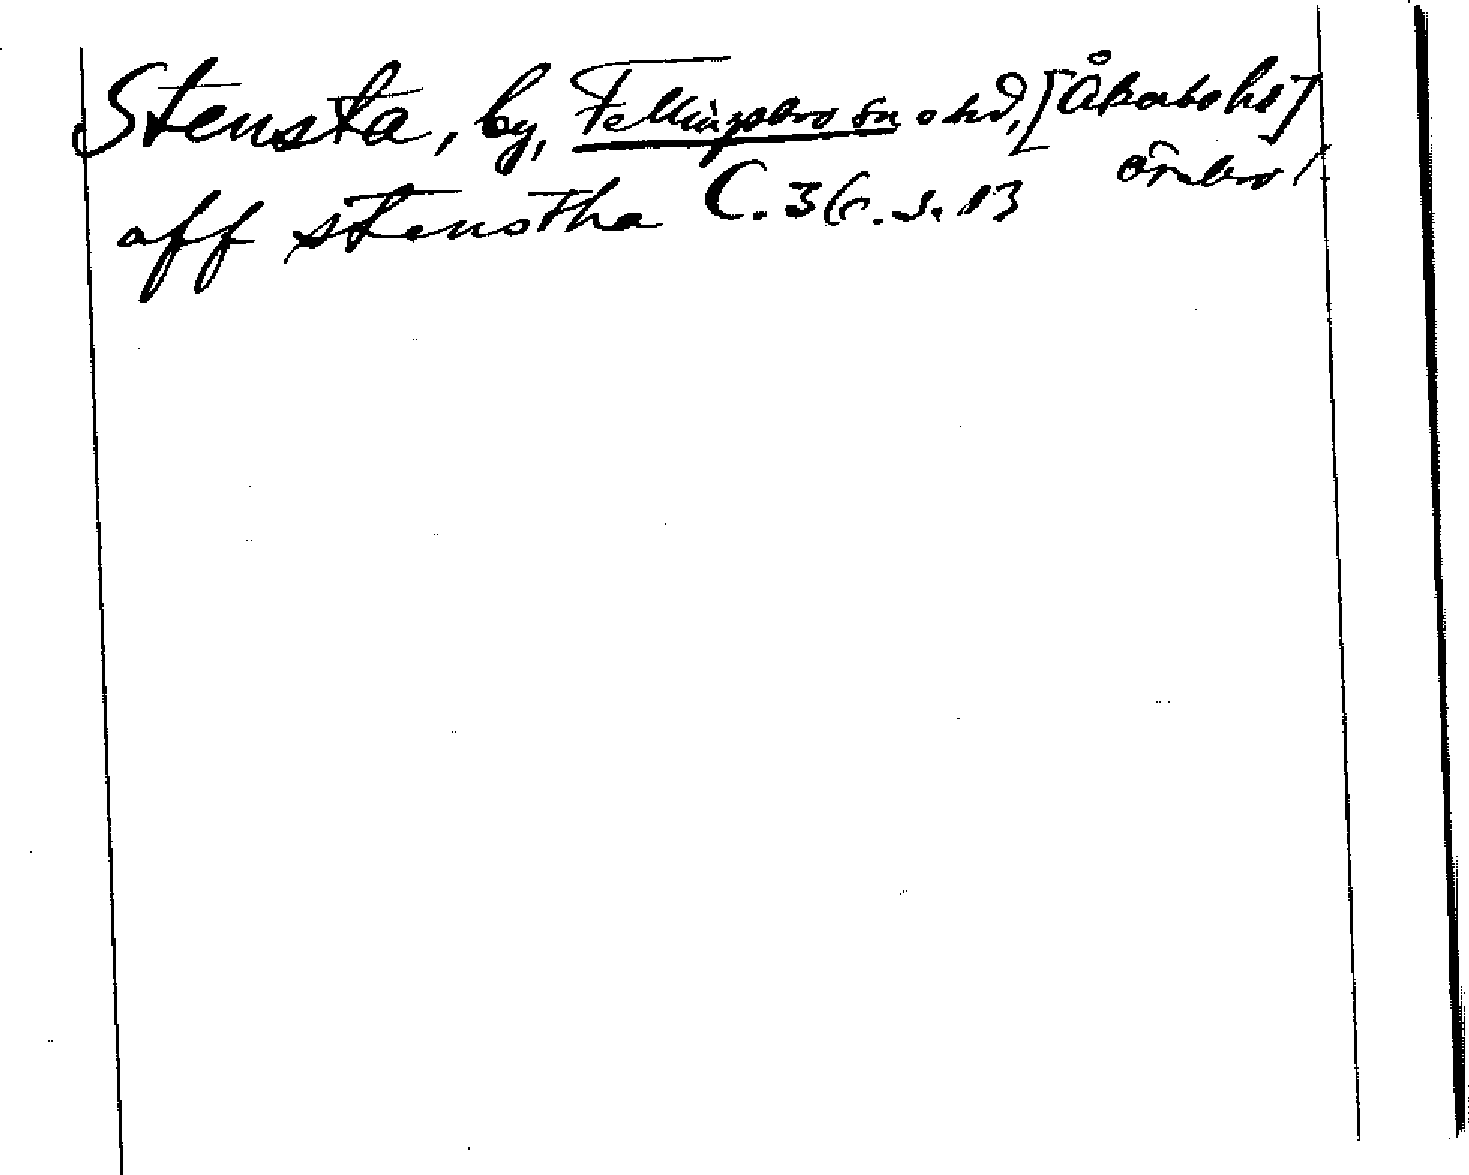 Stensta, by, Fellingsbro sn o hd, [Åkerbo hd]
Örebro l.
aff stenstha C. 36. s. 13